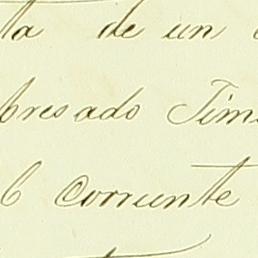 ta de un
bresado Tim
6 Corriente